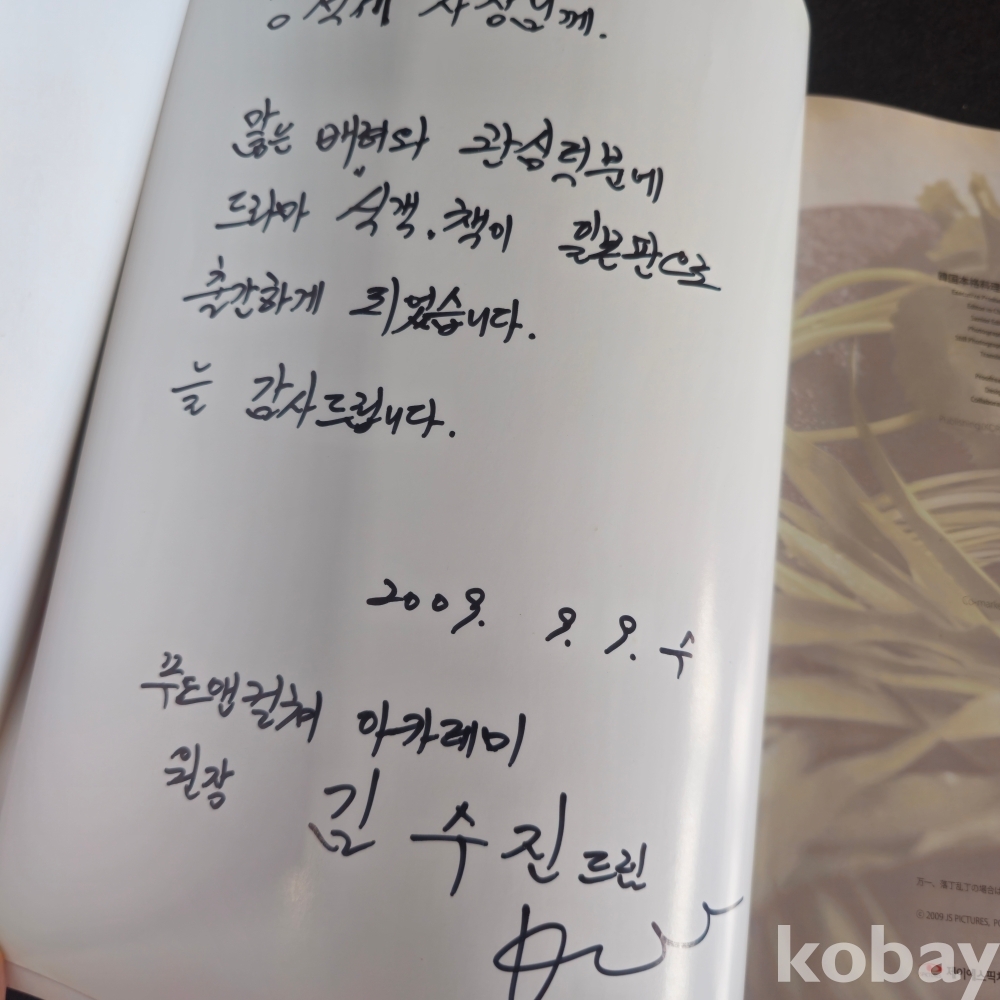 사장님께.
많은 배려와 관심덕분에
드라마 식객. 책이 일본판으로
출간하게 되었습니다.
늘 감사드립니다.
2009. 9. 9. 수
푸드앤컬쳐 아카데미
원장 김수진 드림
万一、落丁乱丁の場合は
© 2009 JS PICTURES,
kobay